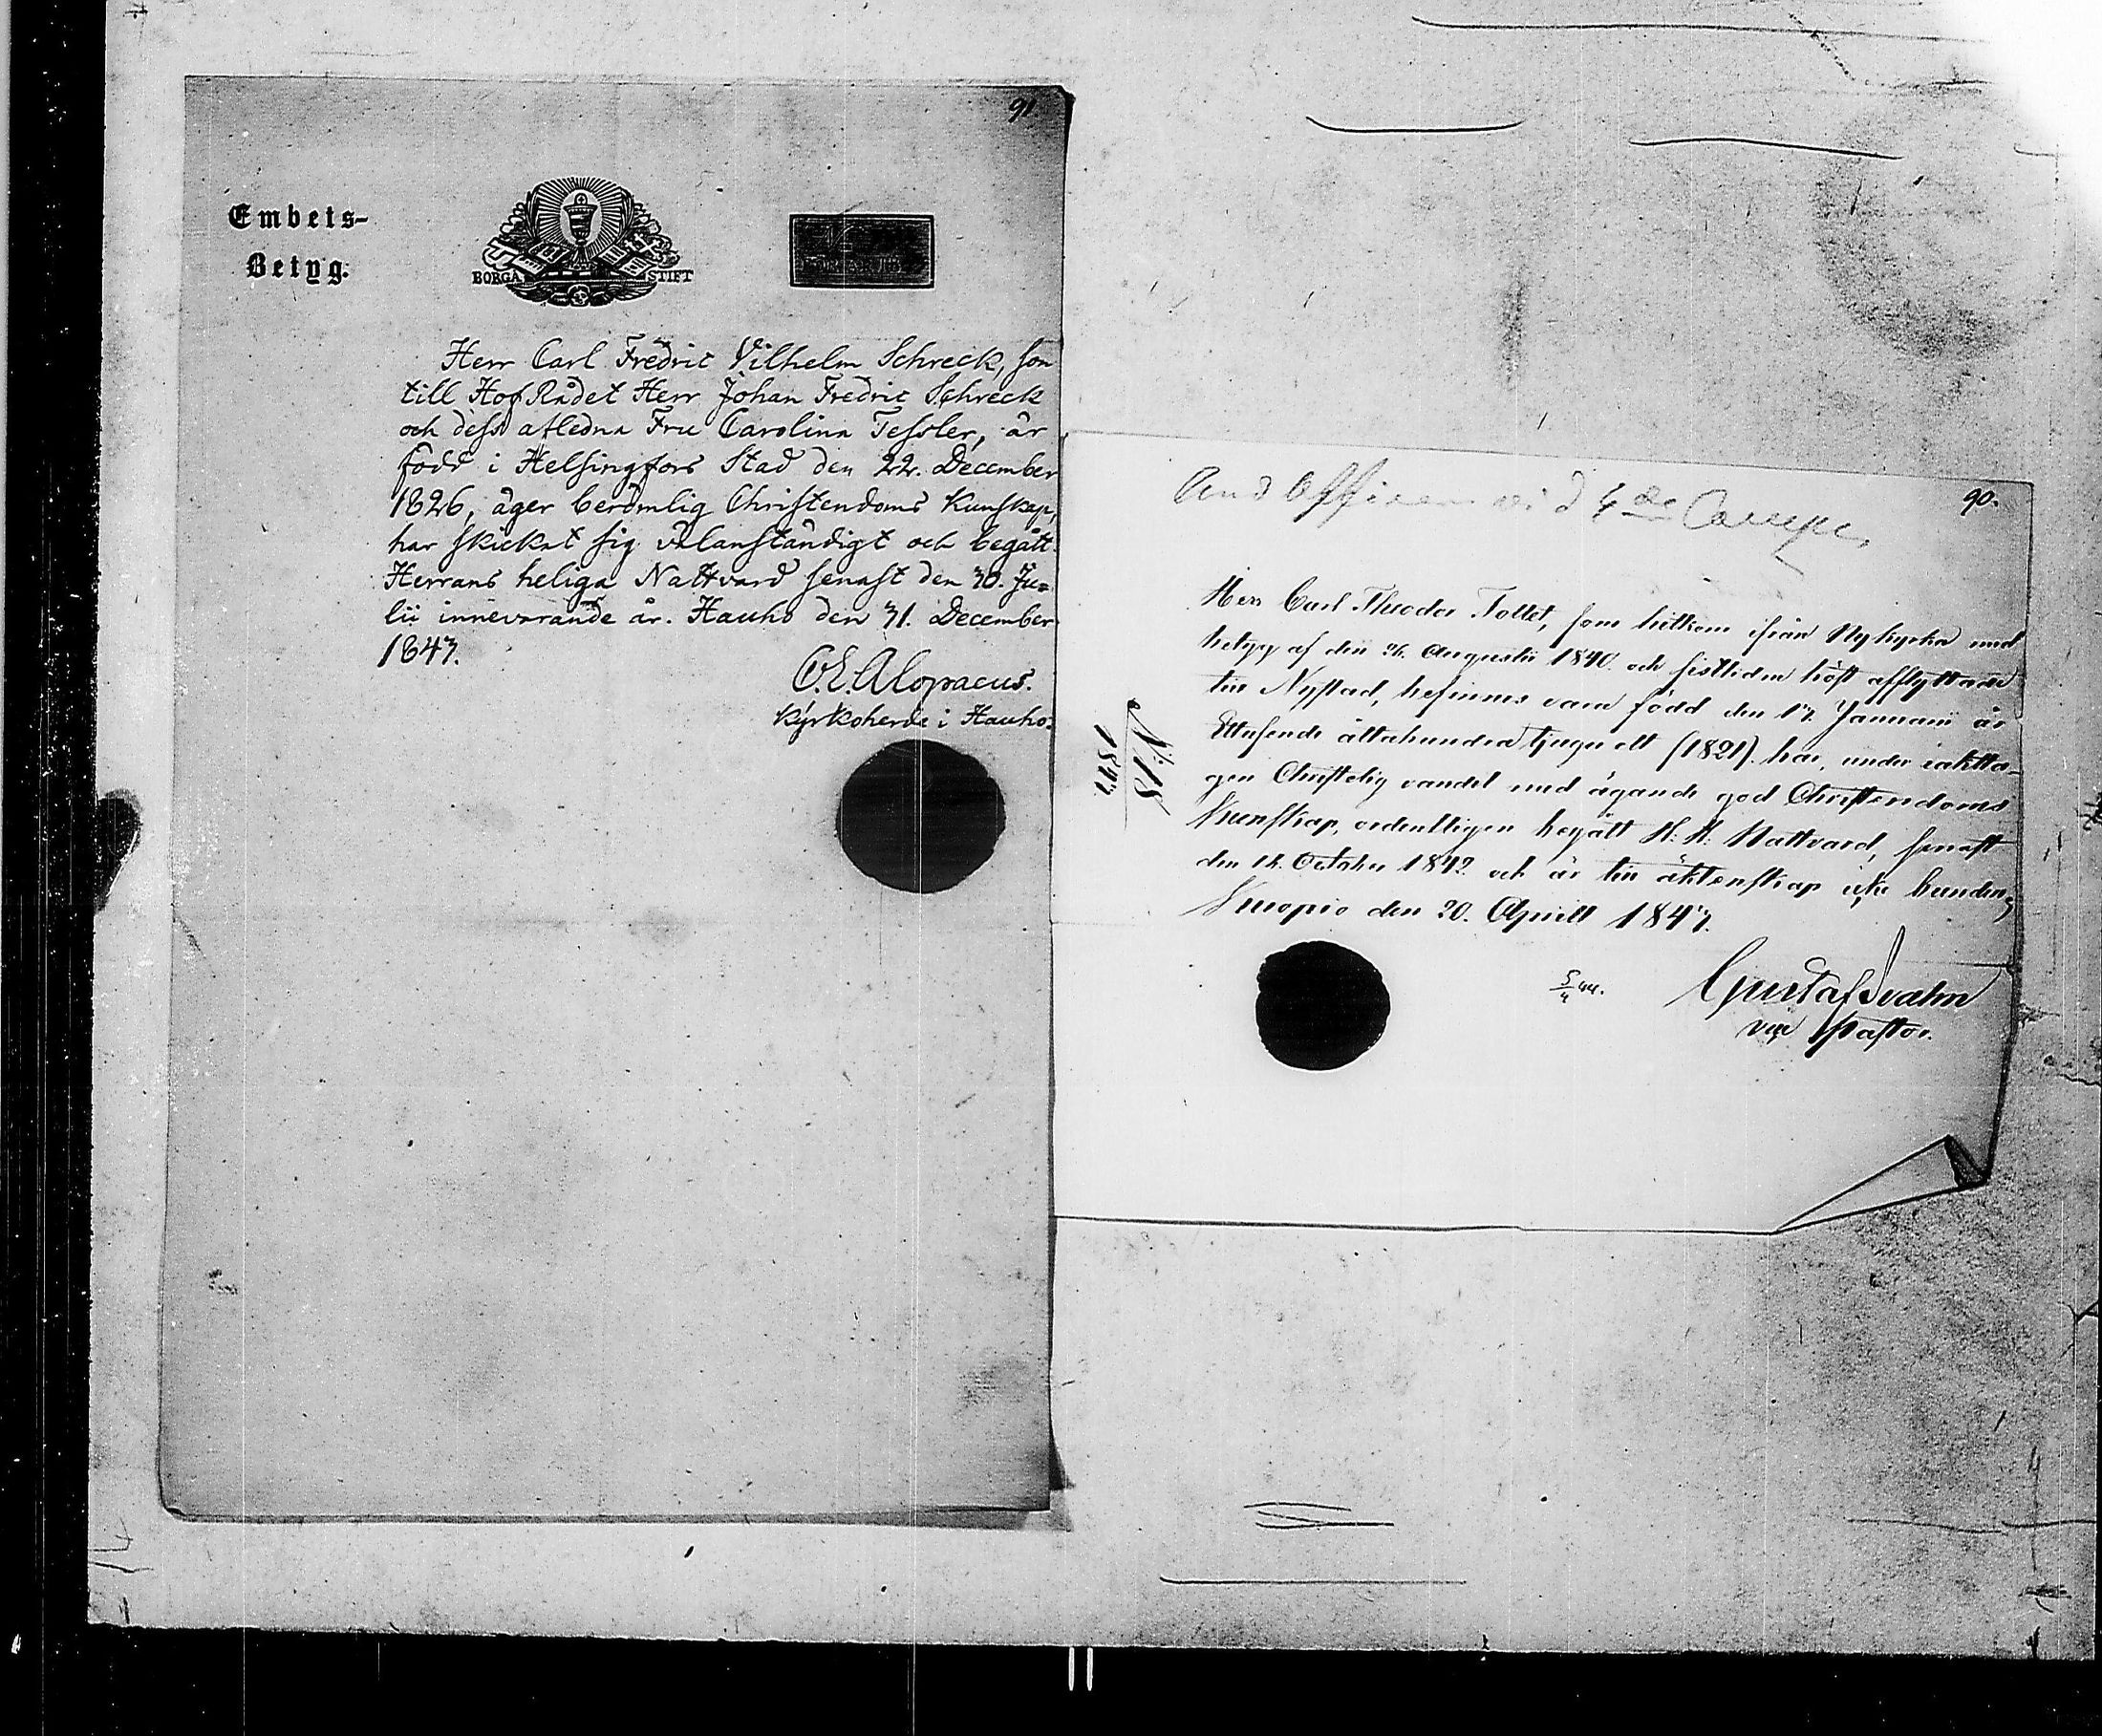 91
Embets-
Betyg.
BORGÅ STIFT
Herr Carl Fredric Vilhelm Schreck, son
till HofRådet Herr Johan Fredric Schreck
och dess afledna Fru Carolina Tessler, är
född i Helsingfors Stad den 22. December
1826, äger berömlig Christendoms Kunskap,
har skickat sig välanständigt och begått
Herrans heliga Nattvard senast den 30. Ju=
lii innevarande år. Hauho den 31. December
1847.
Alopaeus.
Kyrkoherde i Hauho.
90.
vid 4de
Herr Carl Theodor Tollet, som hitkom ifrån Nykyrka med
betyg af den 26. Augusti 1840. och sistliden höst afflyttade
till Nystad, befinnes vara född den 17. Januarii år
Ettusende åttahundra tjugu ett (1821). har, under iaktta-
gen Christelig vandel med ägande god Christendoms
Kunskap, ordentligen begått H. H. Nattvard, senast
den October 1842 och är till äktenskap icke bunden,
Kuopio den 20. Aprill 1843.
N:18
Gustaf
vice Pastor.